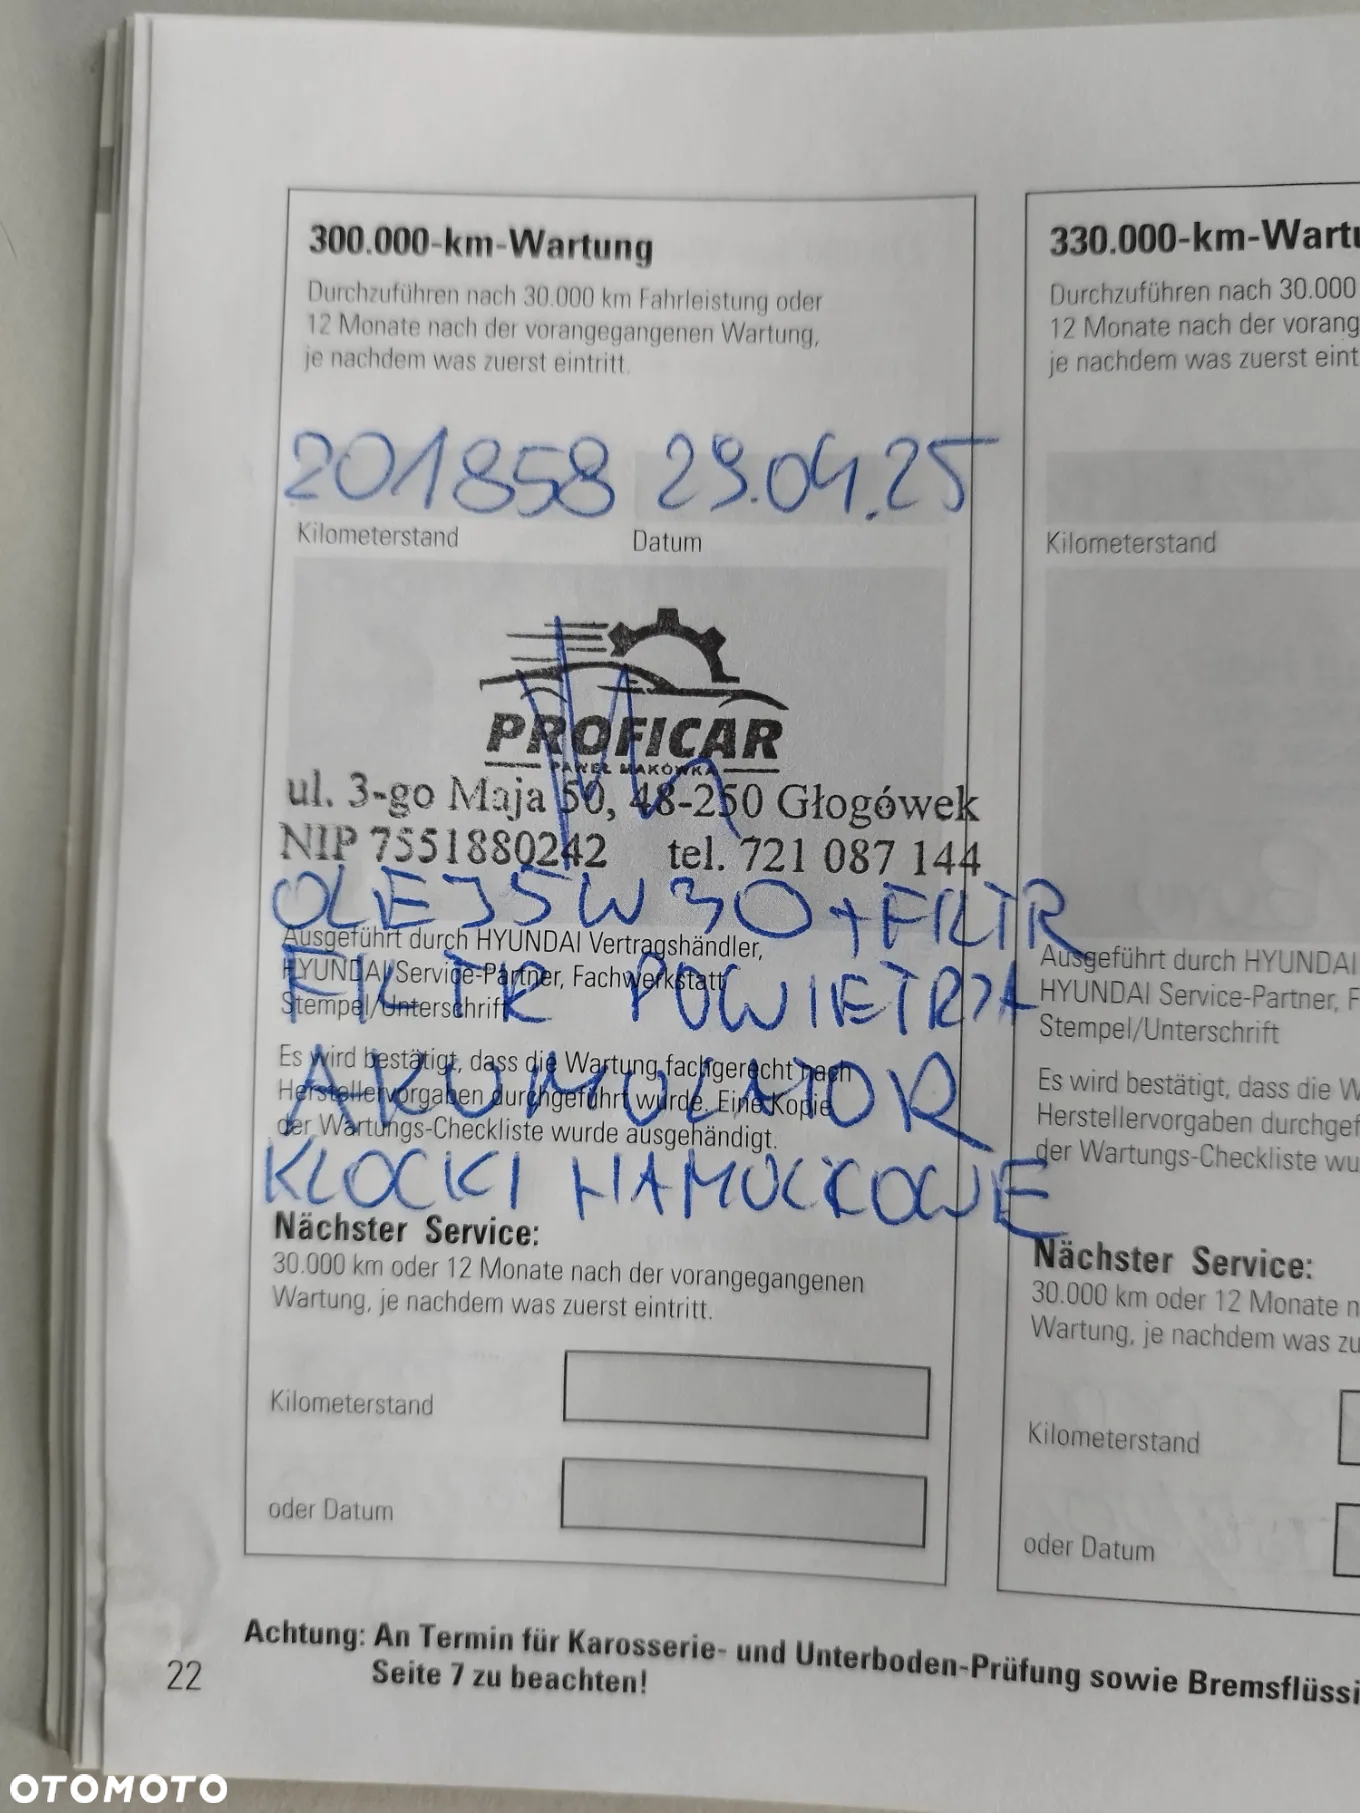 300.000-km-Wartung
Durchzuführen nach 30.000 km Fahrleistung oder
12 Monate nach der vorangegangenen Wartung,
je nachdem was zuerst eintritt.
201858 29.04.25
Kilometerstand Datum
PROFICAR
PAWEŁ MAKÓWKA
ul. 3-go Maja 50, 48-250 Głogówek
NIP 7551880242 tel. 721 087 144
OLEJ 5W30 + FILTR
Ausgeführt durch HYUNDAI Vertragshändler,
HYUNDAI Service-Partner, Fachwerkstatt
FILTR POWIETRZA
Stempel/Unterschrift
Es wird bestätigt, dass die Wartung fachgerecht nach
AKUMULATOR
Herstellervorgaben durchgeführt wurde. Eine Kopie
der Wartungs-Checkliste wurde ausgehändigt.
KLOCKI HAMULCOWE
Nächster Service:
30.000 km oder 12 Monate nach der vorangegangenen
Wartung, je nachdem was zuerst eintritt.
Kilometerstand
oder Datum
330.000-km-Wartu
Durchzuführen nach 30.000
12 Monate nach der vorang
je nachdem was zuerst eint
Kilometerstand
Ausgeführt durch HYUNDAI
HYUNDAI Service-Partner, F
Stempel/Unterschrift
Es wird bestätigt, dass die W
Herstellervorgaben durchgef
der Wartungs-Checkliste wu
Nächster Service:
30.000 km oder 12 Monate n
Wartung, je nachdem was zu
Kilometerstand
oder Datum
Achtung: An Termin für Karosserie- und Unterboden-Prüfung sowie Bremsflüssi
Seite 7 zu beachten!
22
OTOMOTO